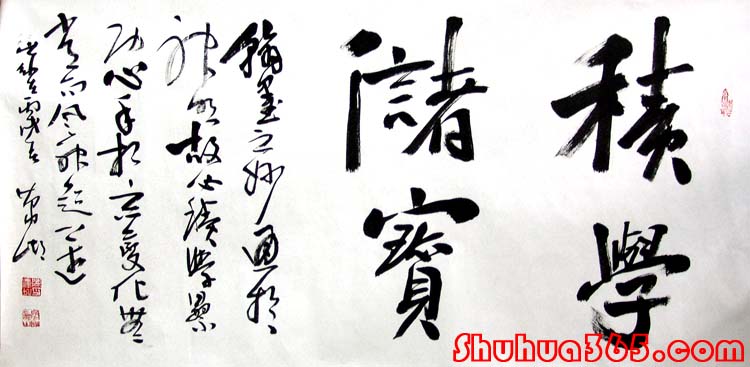 積學
儲寶
翰墨之妙通於
神明故必積學累
功心手相忘變化無
風神超逸
Shuhua365.com